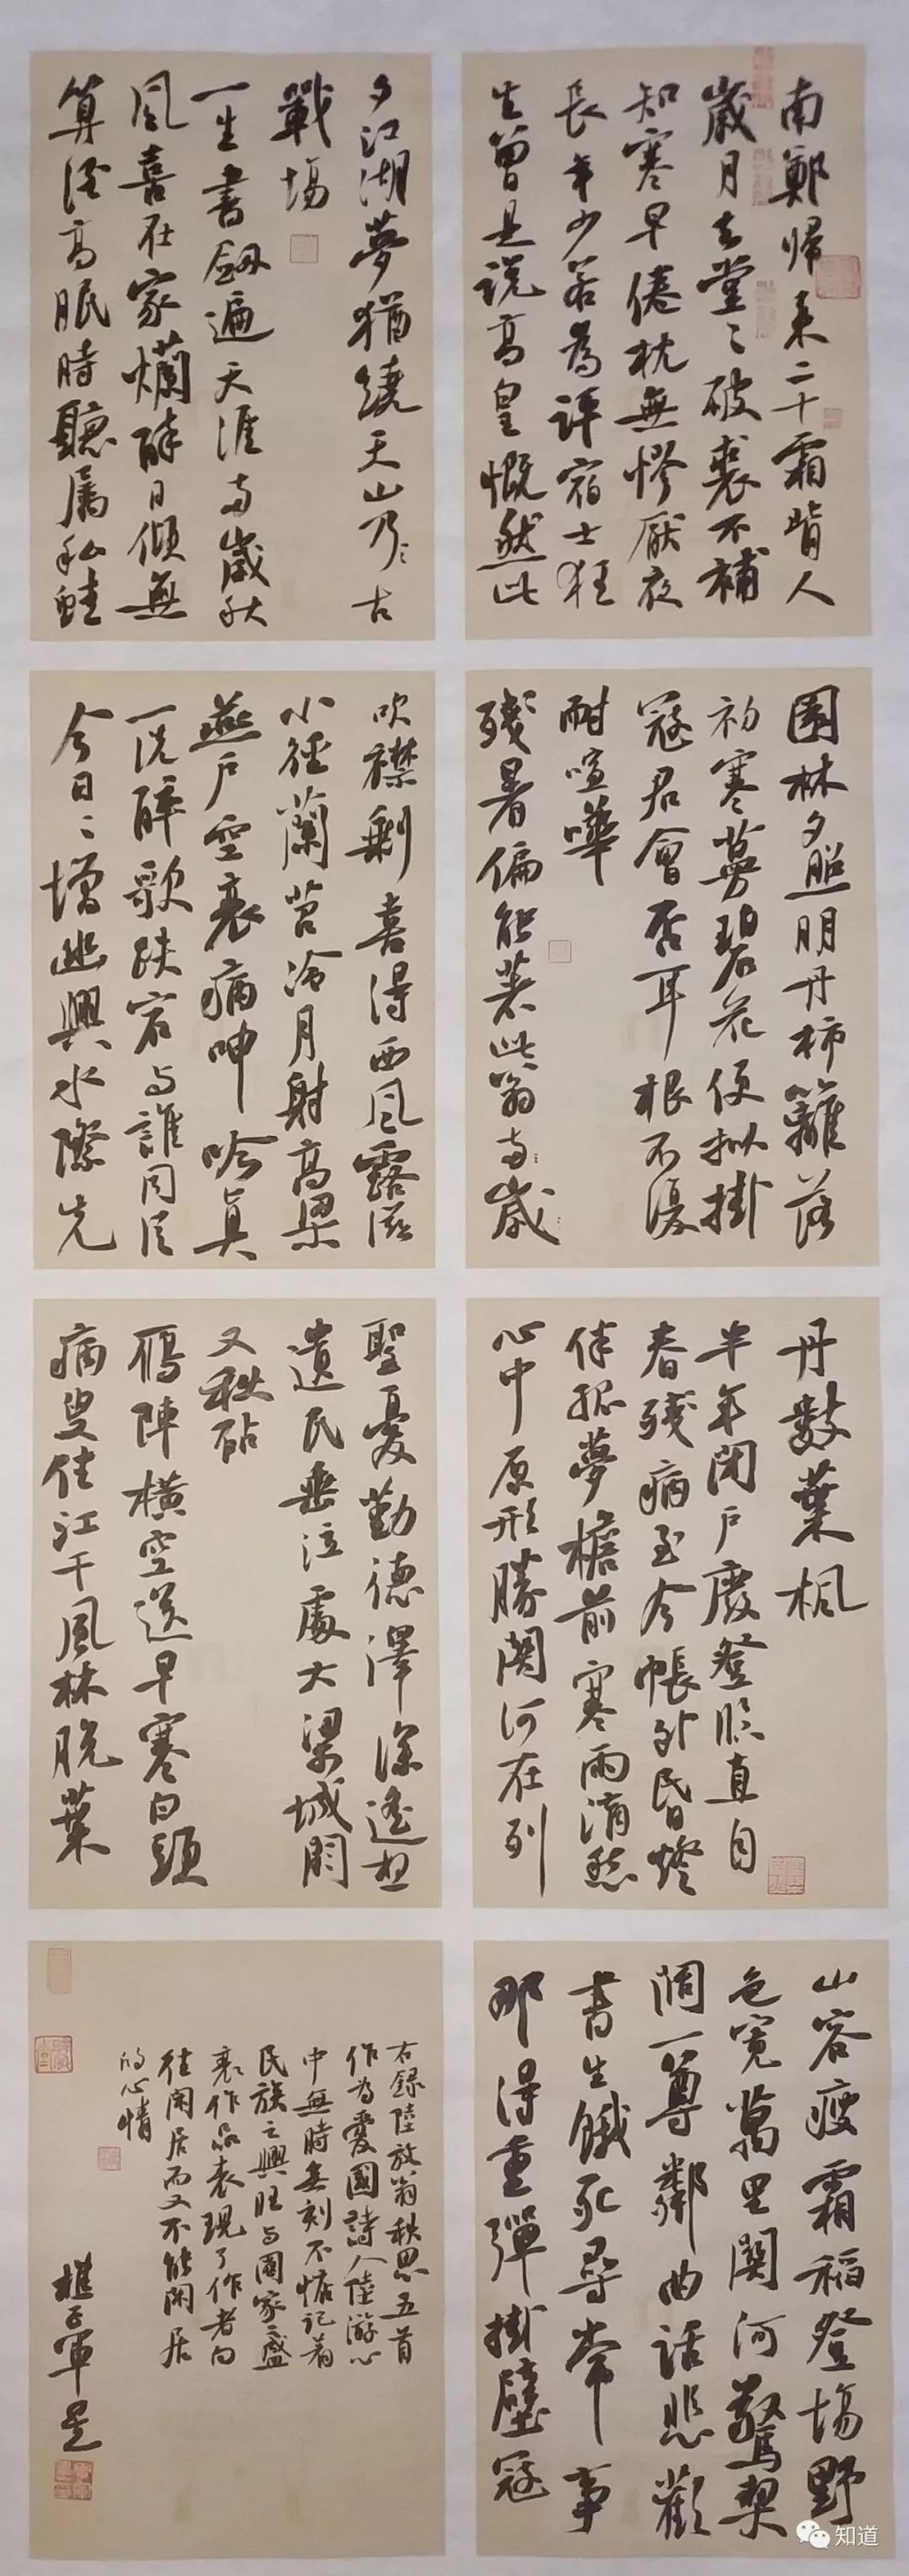 南鄭歸來二十霜背人
歲月去堂々破裘不補
知寒早倦枕無憀厭夜
長年少若爲評宿士狂
生曾是説高皇慨然此
夕江湖夢猶繞天山乃〻古
戰場
一生書劔遍天涯兩歲秋
風喜在家爛醉日傾無
算酒高眠時聽屬私蛙
園林夕照明丹柿籬落
初寒蔓碧花便擬掛
冠君會否耳根不復
耐喧嘩
殘暑偏能著此翁兩歲
吹襟剩喜得西風露滋
小徑蘭苕冷月射高梁
燕户空衰病呻吟真
一洗醉歌跌宕与誰同從
今日々增幽興水際先
丹數葉楓
半年閉户廢登臨直自
春殘病至今帳外昏燈
伴孤夢檐前寒雨滴愁
心中原形勝関河在列
聖憂勤德澤深遙想
遺民垂泣處大梁城闕
又秋砧
雁陣橫空送早寒白頭
病叟住江干風林脫葉
山容瘦霜稻登場野
色寬萬里関河驚契
闊一尊鄰曲話悲歡
書生餓死尋常事
那得重彈掛壁冠
右録陸放翁秋思五首
作為愛國詩人陸游心
中無時無刻不惦记着
民族之興旺与國家之盛
衰作品表現了作者向
往閑居而又不能閑居
的心情
知道